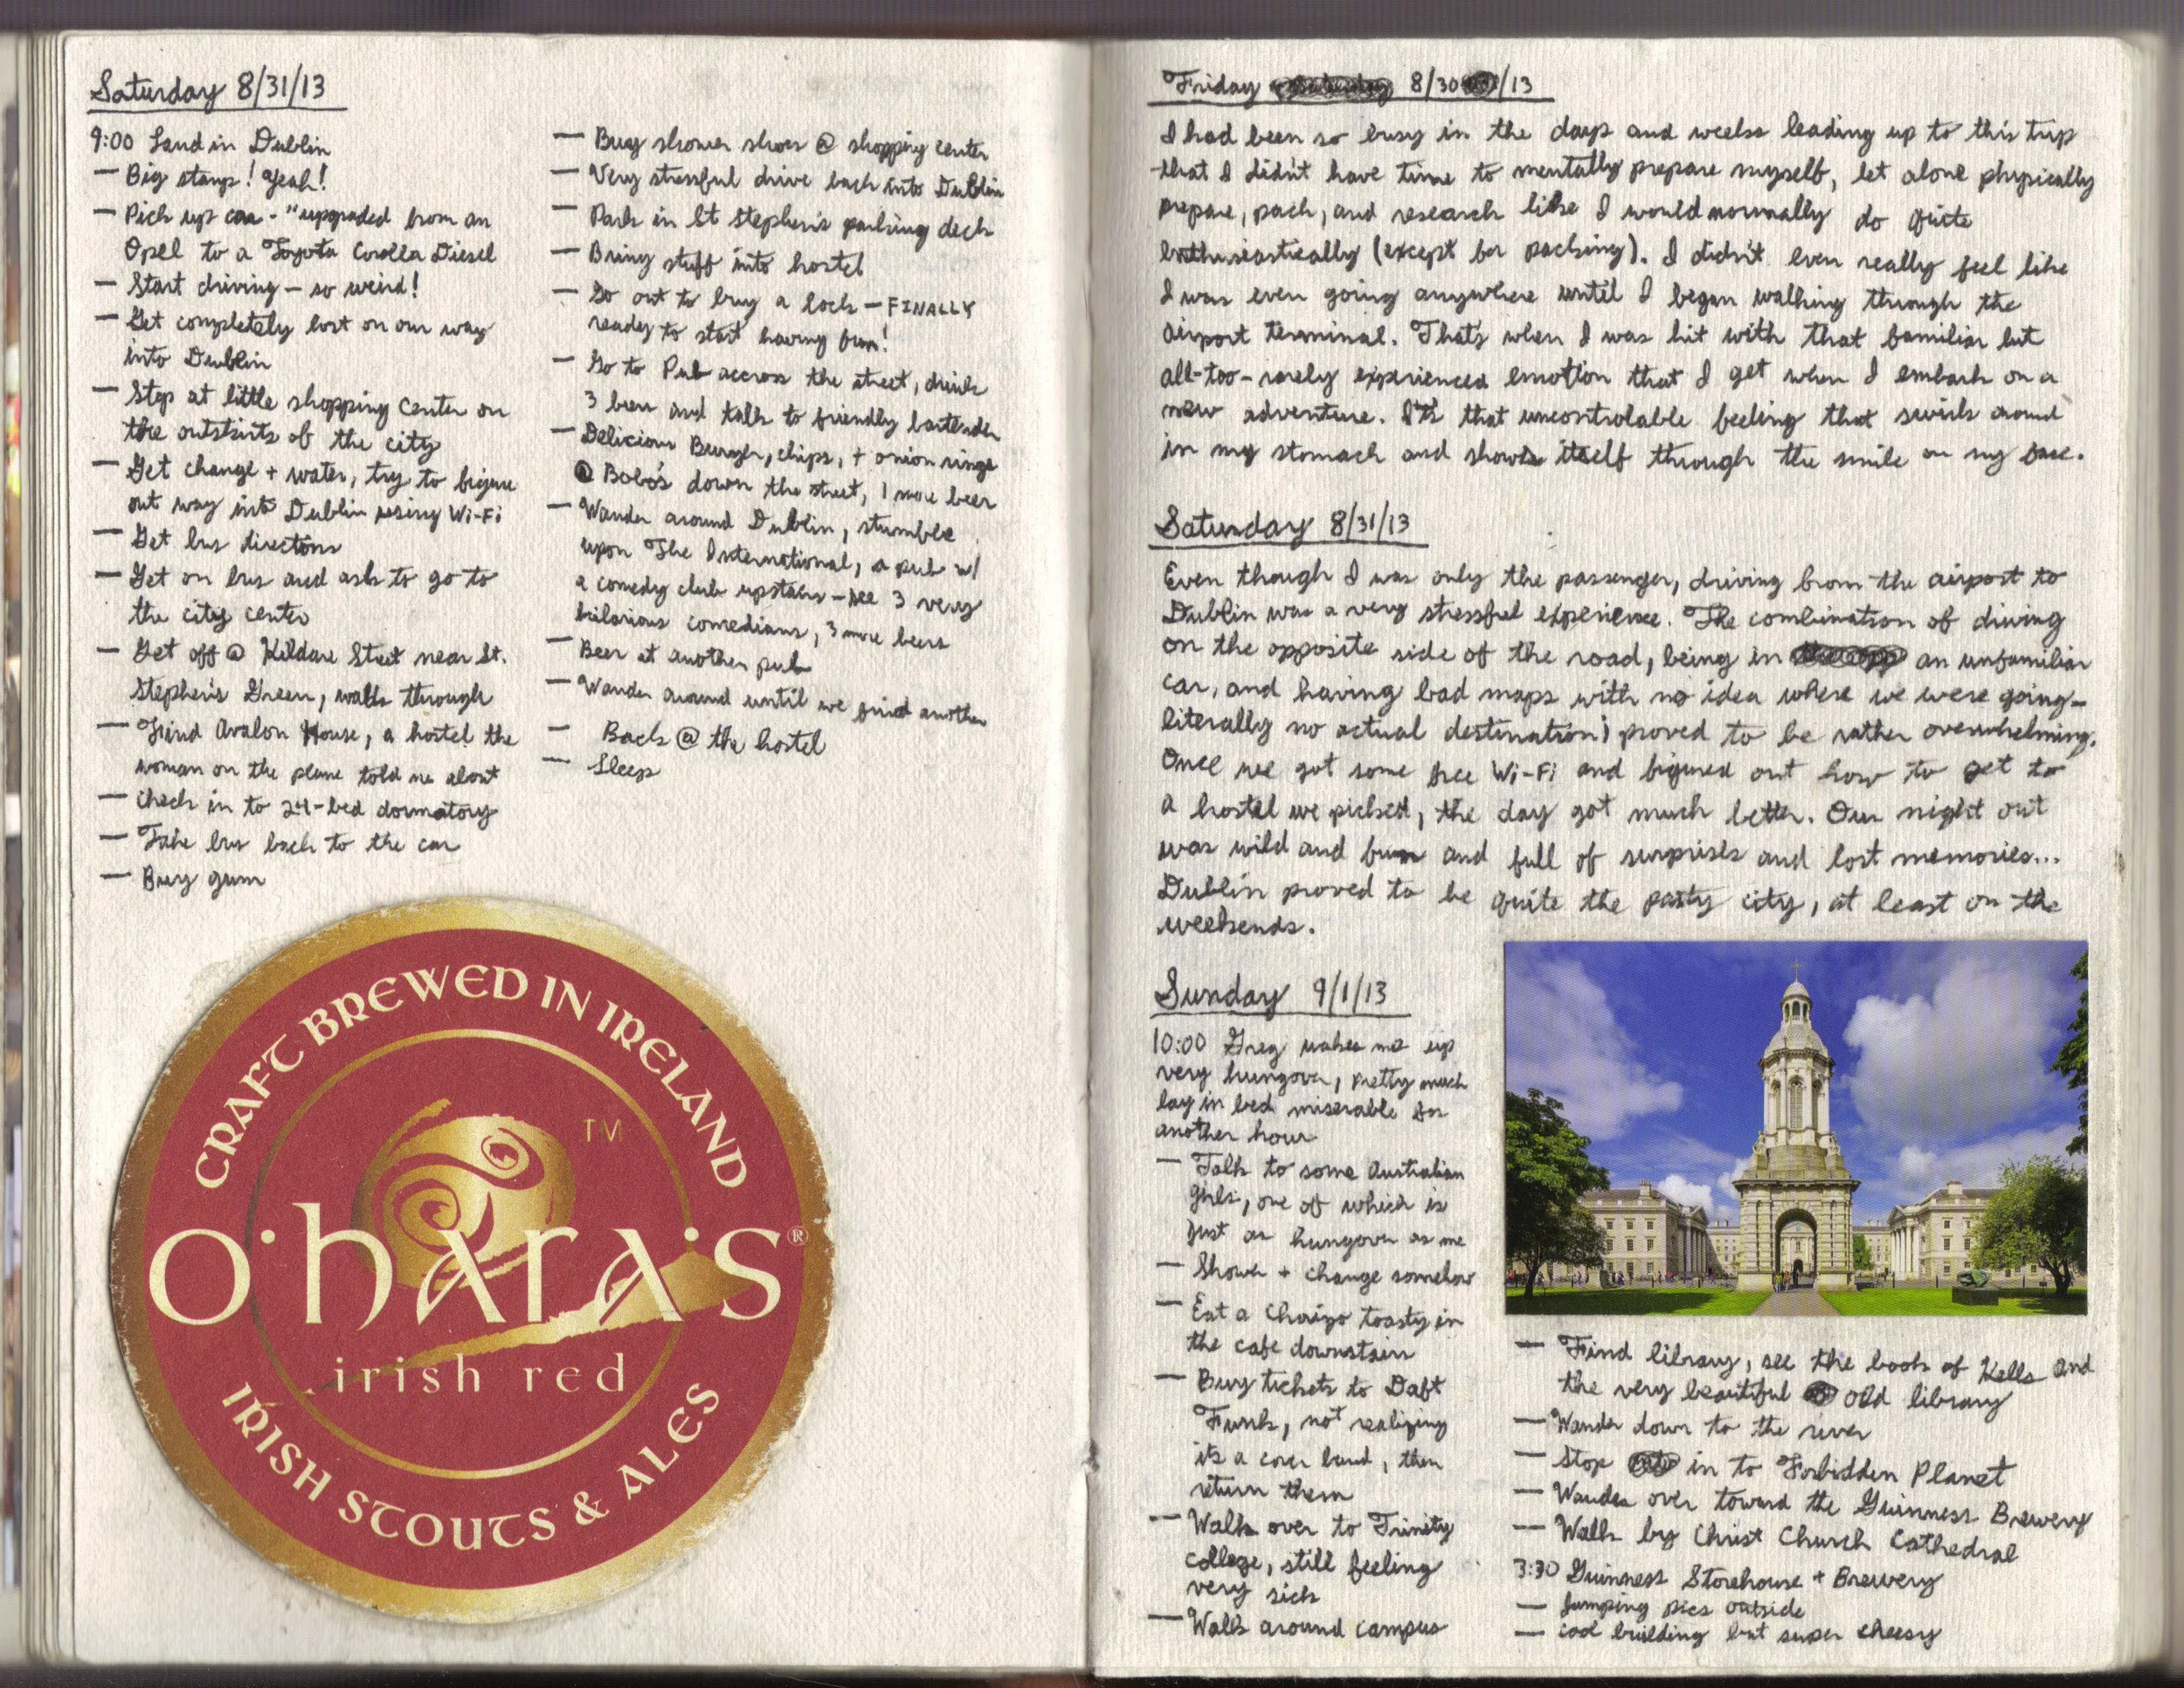 Saturday 8/31/13
9:00 Land in Dublin
— Big stamp! Yeah!
— Pick up car - "upgraded from an
Opel to a Toyota Corolla Diesel
— Start driving — so weird!
— Get completely lost on our way
into Dublin
— Stop at little shopping center on
the outskirts of the city
— Get change + water, try to figure
out way into Dublin using Wi-Fi
— Get bus directions
— Get on bus and ask to go to
the city centre
— Get off @ Kildare Street near St.
Stephen's Green, walk through
— Find Avalon House, a hostel the
woman on the plane told me about
— Check in to 24-bed dormatory
— Take bus back to the car
— Buy gum
— Buy shower shoes @ shopping center
— Very stressful drive back into Dublin
— Park in St Stephen's parking deck
— Bring stuff into hostel
— Go out to buy a lock — FINALLY
ready to start having fun!
— Go to Pub accross the street, drink
3 beers and talk to friendly bartender
— Delicious Burger, chips, + onion rings
@ Bobo's down the street, 1 more beer
— Wander around Dublin, stumble
upon The International, a pub w/
a comedy club upstairs — see 3 very
hilarious comedians, 3 more beers
— Beer at another pub
— Wander around until we find another
— Back @ the hostel
— Sleep
CRAFT BREWED IN IRELAND
TM
O'HARA'S®
irish red
IRISH STOUTS & ALES
Friday 8/30/13
I had been so busy in the days and weeks leading up to this trip
that I didn't have time to mentally prepare myself, let alone physically
prepare, pack, and research like I would normally do quite
enthusiastically (except for packing). I didn't even really feel like
I was even going anywhere until I began walking through the
airport terminal. That's when I was hit with that familiar but
all-too-rarely experienced emotion that I get when I embark on a
new adventure. It's that uncontrolable feeling that swirls around
in my stomach and shows itself through the smile on my face.
Saturday 8/31/13
Even though I was only the passenger, driving from the airport to
Dublin was a very stressful experience. The combination of driving
on the opposite side of the road, being in an unfamiliar
car, and having bad maps with no idea where we were going—
literally no actual destination) proved to be rather overwhelming.
Once we got some free Wi-Fi and figured out how to get to
a hostel we picked, the day got much better. Our night out
was wild and fun and full of surprises and lost memories...
Dublin proved to be quite the party city, at least on the
weekends.
Sunday 9/1/13
10:00 Greg wakes me up
very hungover, pretty much
lay in bed miserable for
another hour
— Talk to some Australian
girls, one of which is
just as hungover as me
— Shower + change somehow
— Eat a Chorizo toasty in
the cafe downstairs
— Buy tickets to Daft
Funk, not realizing
it's a cover band, then
return them
— Walk over to Trinity
college, still feeling
very sick
— Walk around campus
— Find library, see the book of Kells and
the very beautiful old library
— Wander down to the river
— Stop in to Forbidden Planet
— Wander over toward the Guinness Brewery
— Walk by Christ Church Cathedral
3:30 Guinness Storehouse + Brewery
— Jumping pics outside
— cool building but super cheesy